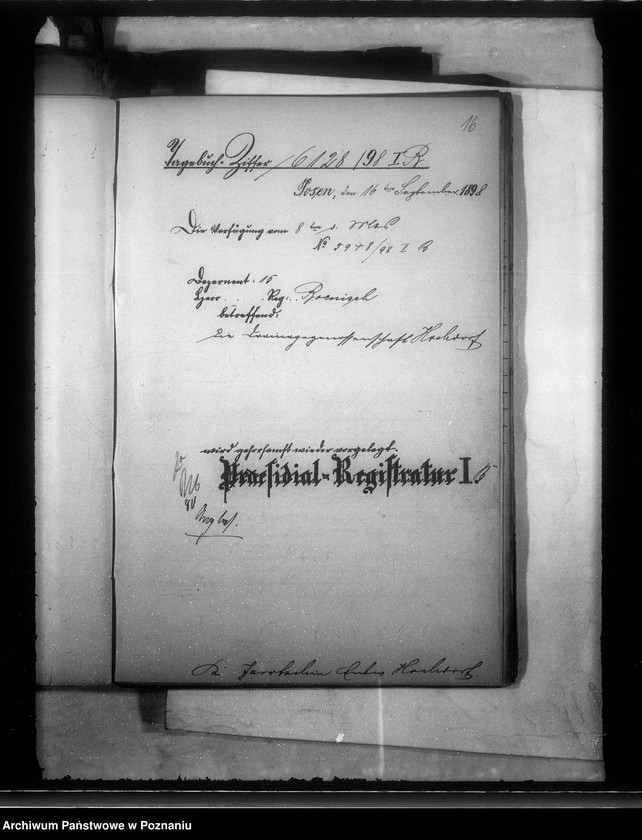 16
Tagebuch-Ziffer 6128/98 I. B.
Posen, den 16 ten September 1898
Die Verfügung vom 8 ten d. Mts
No 5948/98 I B
Dezernent. 15
Herr . . . Reg. . Roenisch
betreffend:
die Drainagegenossenschaft Hochdorf
wird gehorsamst wieder vorgelegt.
Praesidial-Registratur I.
Jarotschin Hochdorf
Archiwum Państwowe w Poznaniu